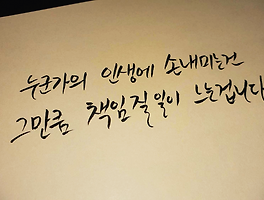 누군가의 인생에 손내미는건
그만큼 책임질 일이 느는겁니다